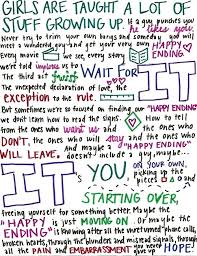 GIRLS ARE TAUGHT A LOT OF
STUFF GROWING UP. If a guy punches you
he likes you.
Never try to trim your own bangs and someday you will
meet a wonderful guy and get your very own HAPPY
ENDING
Every movie we see, every story
we're told implores us to WAIT FOR IT
The third act twist
The unexpected declaration of love, the
exception to the rule.
But sometimes we're so focused on finding our "HAPPY ENDING"
we don't learn how to read the signs. How to tell
from the ones who want us and the ones who
DON'T, the ones who will stay and the ones who
WILL LEAVE. And maybe a "HAPPY ENDING"
doesn't include a guy, maybe...
IT'S YOU, ON YOUR OWN,
picking up the
pieces and
STARTING OVER,
freeing yourself for something better. Maybe the
"HAPPY ENDING" is just MOVING ON. Or maybe the
is knowing after all the unreturned phone calls,
broken hearts, through the blunders and misread signals, through
all the PAIN and EMBARRASSMENT you never gave up HOPE!